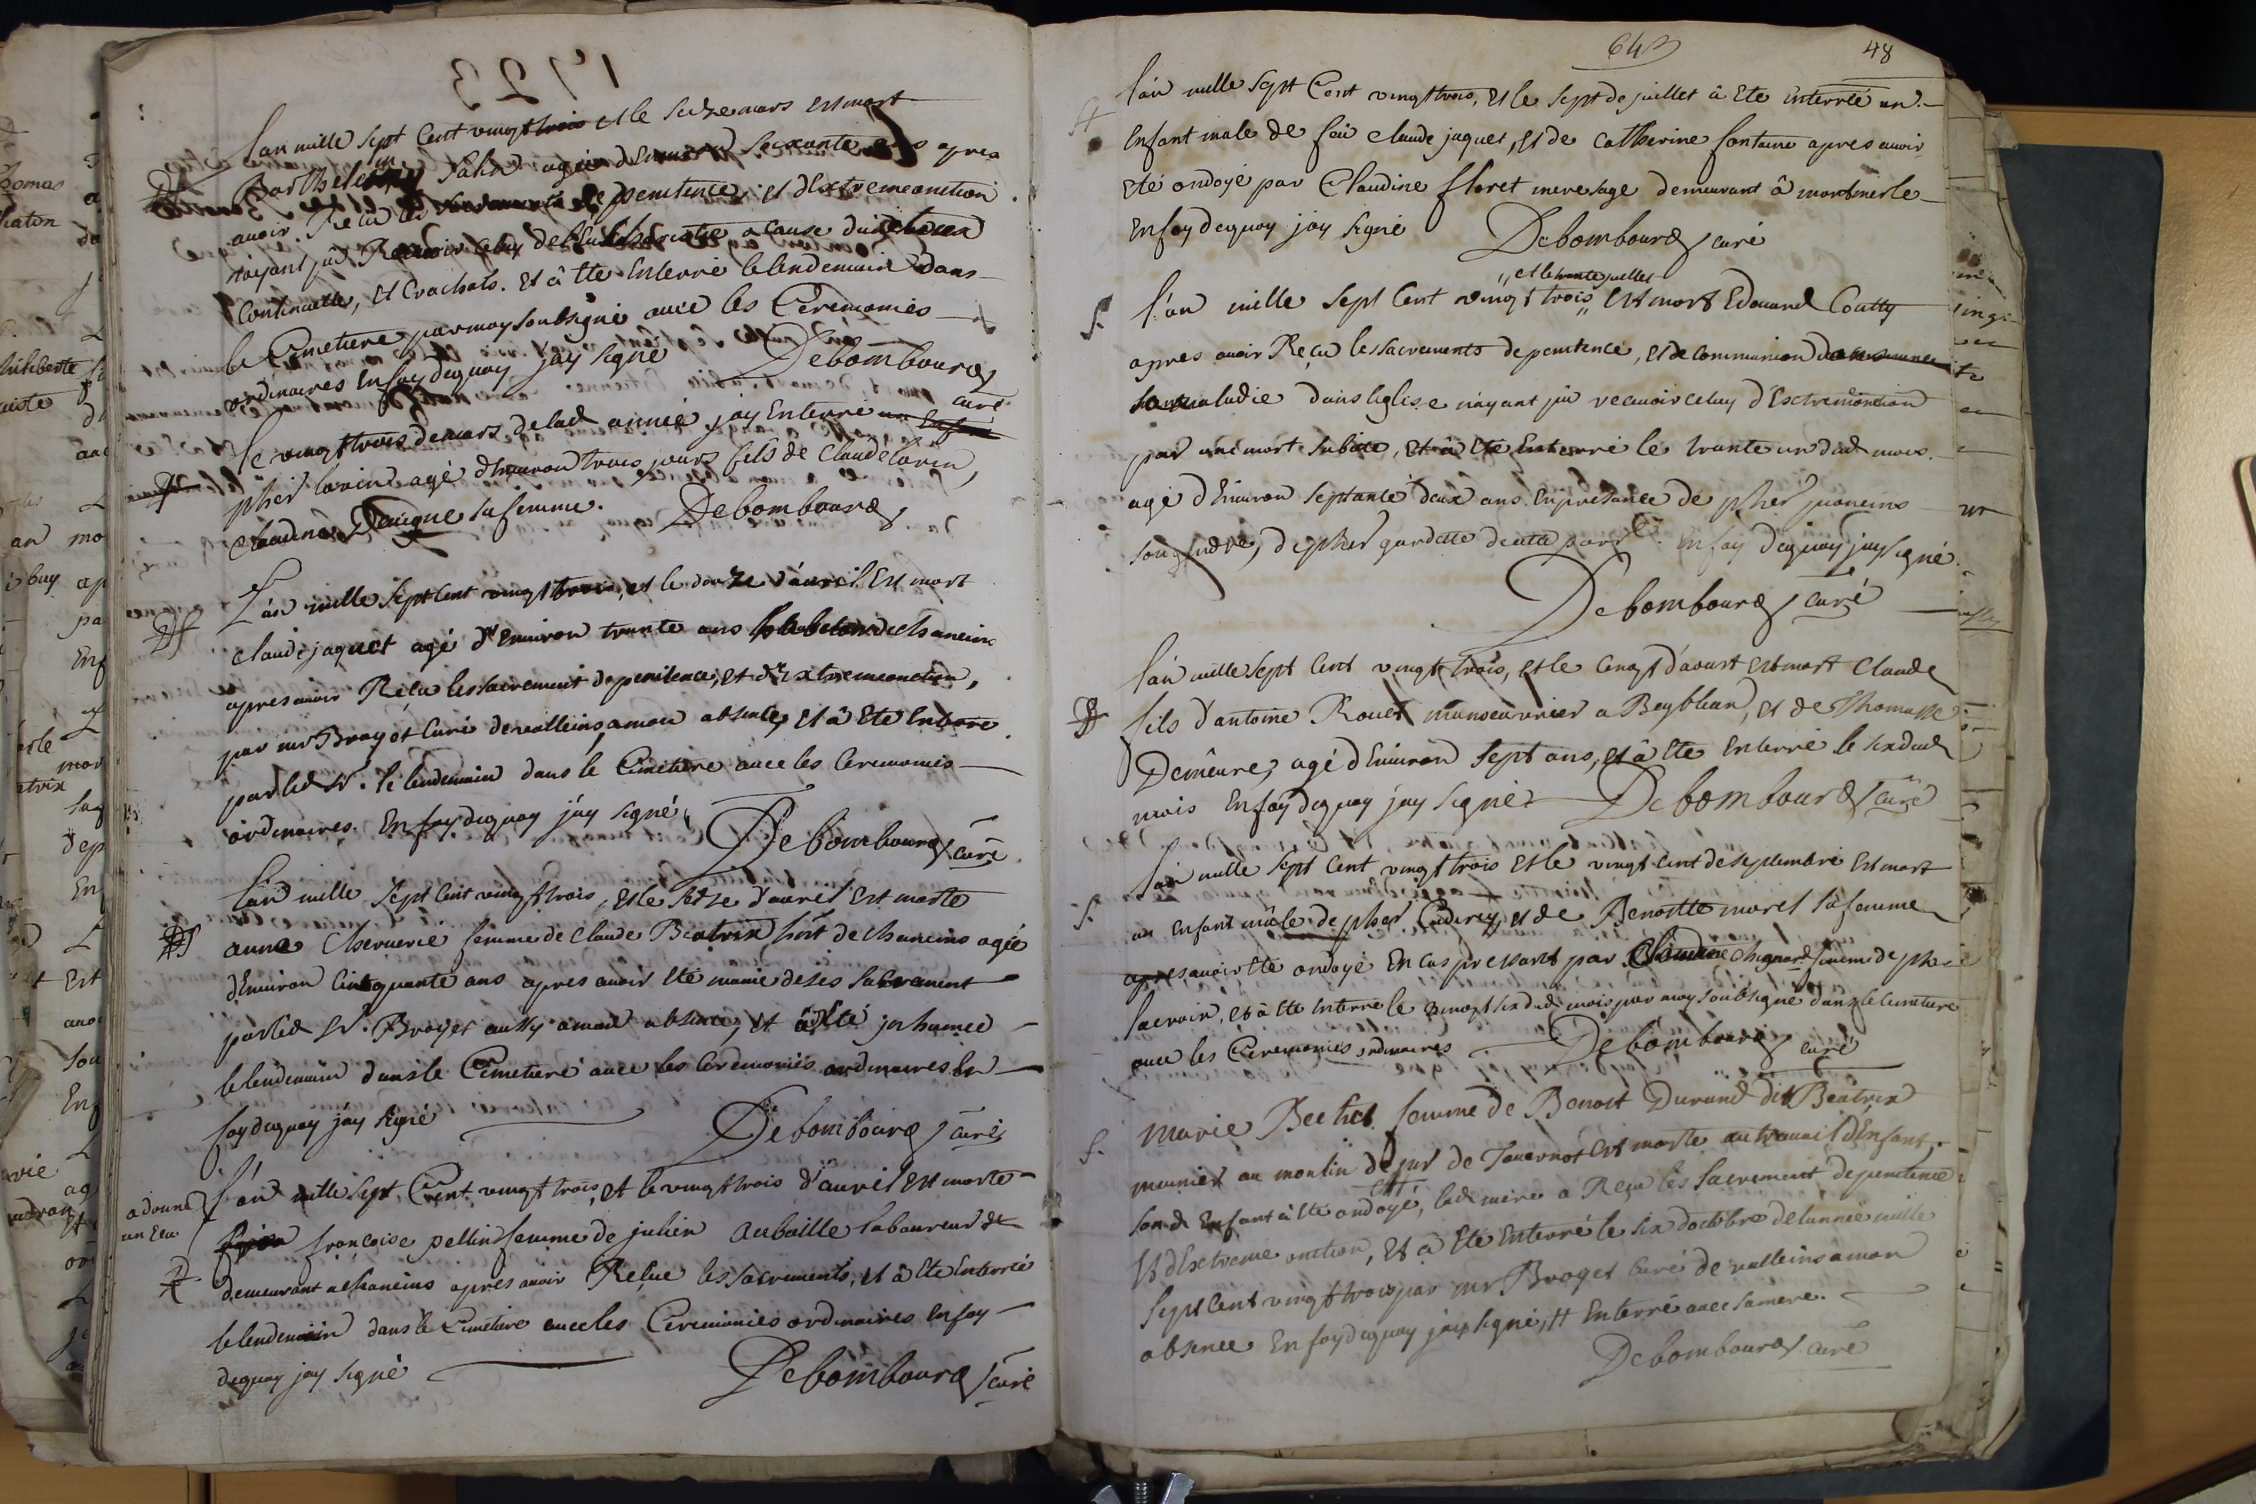 L'an mille sept Cent vingt trois et le seize mars est mort
Barthelemy agé d'Environ soixante ans apres
avoir Reçu les sacrements de penitence et d'Extremeonction
n'ayant pû Recevoir celuy de l'Eucharistie a cause du
Continuelle, et Crachats. Et â Ete Enterré le lendemain dans
le Cimetiere par moy soubsigné avec les Ceremonies
ordinaires En foy dequoy jay signé Debombourg curé
le vingt trois de mars de lad année jay Enterré un Enfant
pher lorin agé d'Environ trois jours fils de Claude lorin,
Claudine sa femme. Debombourg
L'an mille sept Cent vingt trois, et le douze d'avril Est mort
Claude jaquet agé d'Environ trente ans de Chaneins
apres avoir Reçu les sacrement de penitence, et d'Extremeonction,
par mr Broyet Curé de valleins a mon absence, et â Ete Enterré
par led Sr. le lendemain dans le Cimetiere avec les Ceremonies
ordinaires. En foy dequoy j'ay signé, Debombourg curé
L'an mille sept Cent vingt trois, et le seize d'avril Est morte
anne femme de Claude Beatrix hôt de chaneins agée
d'Environ Cinquante ans apres avoir Eté munie de ses sacrement
par led Sr. Broyet aussy a mon absence, et â Eté jnhumée
le lendemain dans le Cimetiere avec les Ceremonies ordinaires En
foy dequoy jay signé Debombourg curé
a donné
un Ecu
L'an mille sept Cent vingt trois, et le vingt trois d'avril Est morte
françoise pellin femme de julien aubaille laboureur et
demeurant a chaneins apres avoir Reçue les sacrements, et â Ete Enterrée
le lendemain dans le Cimetiere avec les Ceremonies ordinaires En foy
dequoy jay signé Debombourg curé
643
48
L'an mille sept Cent vingt trois, et le sept de juillet â Ete Enterré un
Enfant male de feu Claude jaquet, et de Catherine fontaine apres avoir
Eté ondoyé par Claudine floret mere sage demeurant â montmerle
En foy dequoy jay signé Debombourg curé
et le trente juillet
L'an mille sept Cent vingt trois Est mort Edouard Coutty
apres avoir Reçu les sacrements de penitence, et de communion
sa maladie dans l'eglise n'ayant pû recevoir celuy d'Extremonction
par une mort subite, et â Ete Enterré le trente un dud mois
agé d'Environ septante deux ans En presence de pher juoneins
son gendre, de pher gardette de cette parse. En foy dequoy jay signé
Debombourg curé
L'an mille sept Cent vingt trois, et le Cinqt d'aoust Est mort Claude
fils d'antoine Rouer manoeuvrier a Beyblian, et de Thomasse
Demeure, agé d'Environ sept ans, et â Ete Enterré le six dud
mois En foy dequoy jay signé Debombourg curé
L'an mille sept Cent vingt trois et le vingt Cint de septembre Est mort
un Enfant mâle de pher Cadirey, et de Benoitte morel sa femme
apres avoir Ete ondoyé En cas pressant par Claudine Chignard femme de pher
lacroix, et â Ete Enterré le vingt six dud mois par moy soubsigné dans le Cimetiere
avec les Ceremonies ordinaires Debombourg curé
Marie Bechet femme de Benoit Durand dit Beatrix
meunier au moulin de jus de Tavernot Est morte au travail d'Enfant.
sond Enfant â Ete ondoyé, lad mere a Reçu les sacrement de penitence
et d'Extreme onction, et â Ete Enterré le six d'octobre de l'année mille
sept Cent vingt trois par mr Broyet Curé de valleins â mon
absence En foy dequoy jay signé, # Enterré avec sa mere.
Debombourg curé